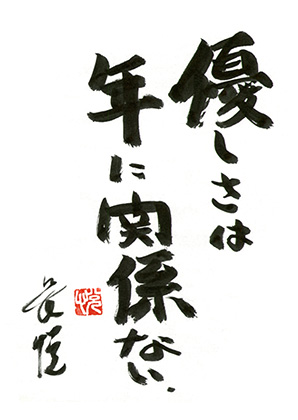 優しさは
年に関係ない.